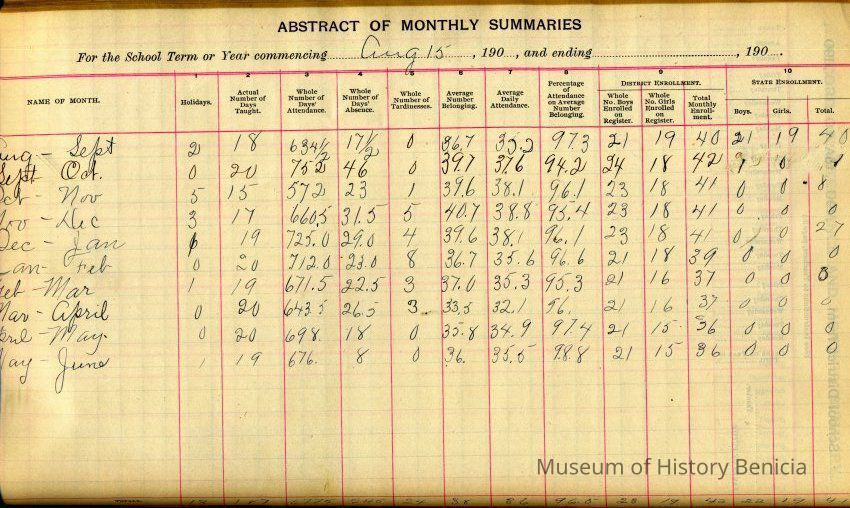 ABSTRACT OF MONTHLY SUMMARIES
For the School Term or Year commencing Aug 15, 190 , and ending , 190 .
1 2 3 4 5 6 7 8 9 10
DISTRICT ENROLLMENT. STATE ENROLLMENT.
NAME OF MONTH. Holidays. Actual Number of Days Taught. Whole Number of Days' Attendance. Whole Number of Days' Absence. Whole Number of Tardinesses. Average Number Belonging. Average Daily Attendance. Percentage of Attendance on Average Number Belonging. Whole No. Boys Enrolled on Register. Whole No. Girls Enrolled on Register. Total Monthly Enrollment. Boys. Girls. Total.
ug - Sept 2 18 634 1/2 17 1/2 0 36.7 35.2 97.3 21 19 40 21 19 40
Sept Oct. 0 20 752 46 0 39.7 37.6 94.2 24 18 42 0
ct - Nov 5 15 572 23 1 39.6 38.1 96.1 23 18 41 0 0 8
ov - Dec 3 17 660.5 31.5 5 40.7 38.8 95.4 23 18 41 0 0 0
Dec - Jan 19 725.0 29.0 4 39.6 38.1 96.1 23 18 41 0 0 27
an - Feb 0 20 712.0 23.0 8 36.7 35.6 96.6 21 18 39 0 0 0
eb - Mar 1 19 671.5 22.5 3 37.0 35.3 95.3 21 16 37 0 0 0
Mar - April 0 20 643.5 26.5 3 33.5 32.1 96. 21 16 37 0 0 0
pril - May 0 20 698. 18 0 35.8 34.9 97.4 21 15 36 0 0 0
May - June 1 19 676. 8 0 36. 35.5 98.8 21 15 36 0 0 0
Museum of History Benicia